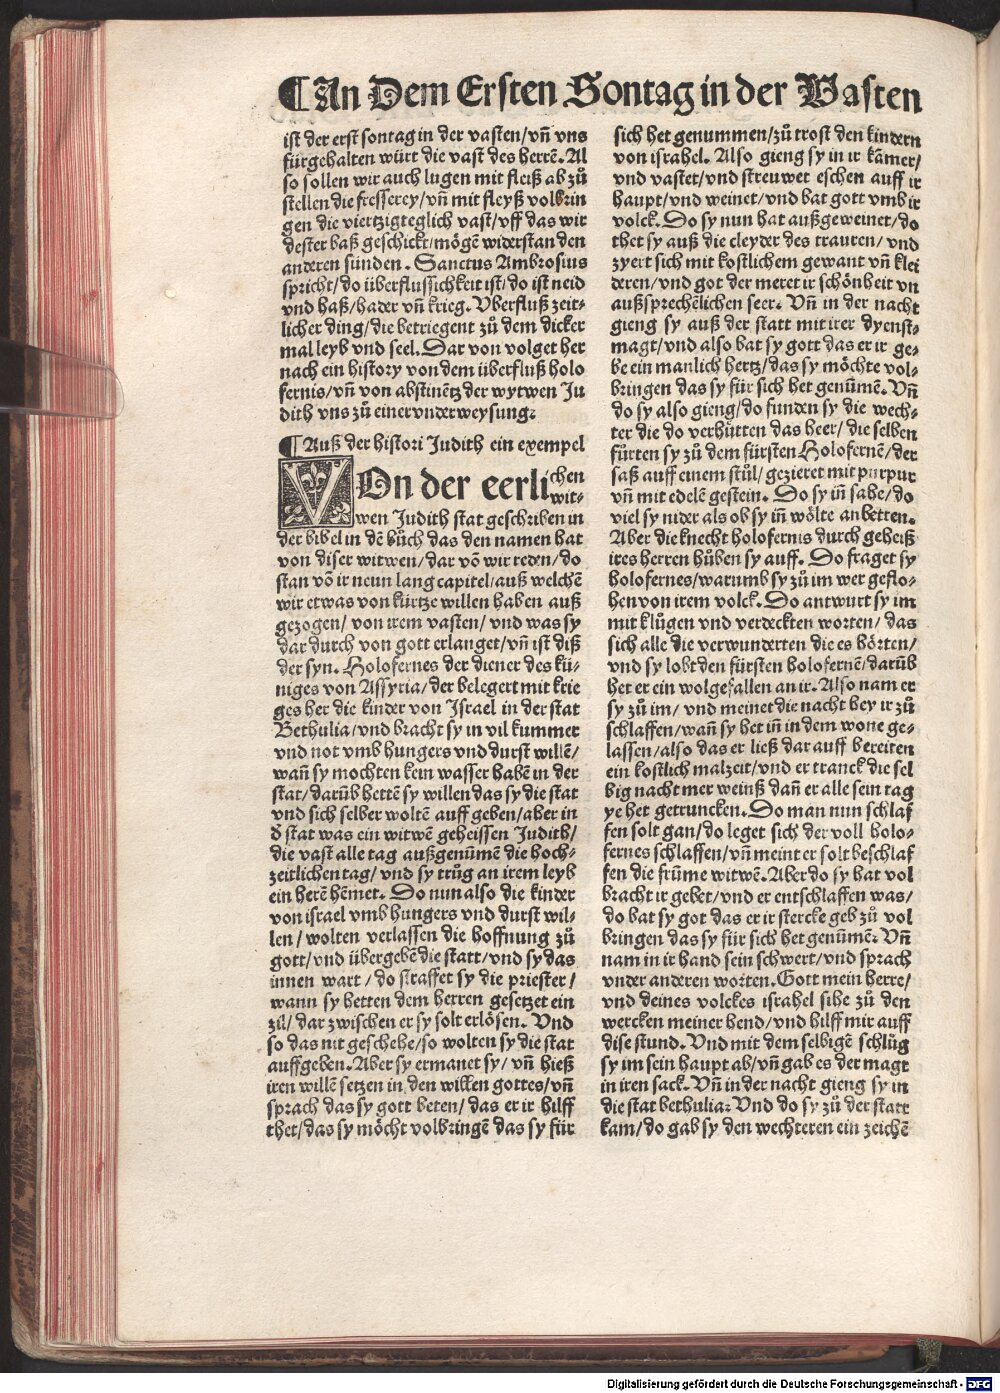 ¶ An Dem Ersten Sontag in der Vasten
ist der erst sontag in der vasten/vn̄ vns
fürgehalten würt die vast des herrē. Al
so sollen wir auch lugen mit fleiß ab zů
stellen die fresserey/vn̄ mit fleyß volbrin
gen die viertzigteglich vast/vff das wir
dester baß geschickt/mögē widerstanden
anderen sünden. Sanctus Ambrosius
spricht/do überflussichkeit ist/do ist neid
vnd haß/hader vn̄ krieg. Vberfluß zeit⸗
licher ding/die betriegent zů dem dicker
mal leyb vnd seel. Dar von volget her
nach ein history von dem überfluß holo
fernis/vn̄ von abstinētz der wytwen Ju
dith vns zů einer vnderweysung:
¶ Auß der histori Judith ein exempel
VOn der eerlichen
wit⸗
wen Judith stat geschriben in
der bibel in dē bůch das den namen hat
von diser witwen/dar vō wir reden/do
stan vō ir neun lang capitel/auß welchē
wir etwas von kürtze willen haben auß
gezogen/ von irem vasten/ vnd was sy
dar durch von gott erlanget/vn̄ ist diß
der syn. Holofernes der diener des kü⸗
niges von Assyria/der belegert mit krie
ges her die kinder von Israel in der stat
Bethulia/vnd bracht sy in vil kummer
vnd not vmb hungers vnd durst willē/
wan̄ sy mochten kein wasser habē in der
stat/darūb hettē sy willen das sy die stat
vnd sich selber woltē auff geben/aber in
d̓ stat was ein witwē geheissen Judith/
die vast alle tag außgenūmē die hoch⸗
zeitlichen tag/ vnd sy trůg an irem leyb
ein herē hēmet. Do nun also die kinder
von israel vmb hungers vnd durst wil⸗
len/ wolten verlassen die hoffnung zů
gott/vnd übergebē die statt/vnd sy das
innen wart/ do straffet sy die priester/
wann sy hetten dem herren gesetzet ein
zil/ dar zwischen er sy solt erlösen. Vnd
so das nit geschehe/so wolten sy die stat
auffgeben. Aber sy ermanet sy/ vn̄ hieß
iren willē setzen in den willen gottes/vn̄
sprach das sy gott beten/ das er ir hilff
thet/das sy möcht volbringē das sy für
sich het genummen/zů trost den kindern
von israhel. Also gieng sy in ir kāmer/
vnd vastet/vnd streuwet eschen auff ir
haupt/vnd weinet/vnd bat gott vmb ir
volck. Do sy nun hat außgeweinet/do
thet sy auß die cleyder des trauren/ vnd
zyert sich mit kostlichem gewant vn̄ klei
deren/vnd got der meret ir schönheit vn
außsprechēlichen seer. Vn̄ in der nacht
gieng sy auß der statt mit irer dyenst⸗
magt/vnd also bat sy gott das er ir ge⸗
be ein manlich hertz/das sy möchte vol⸗
bringen das sy für sich het genūmē. Vn̄
do sy also gieng/do funden sy die wech⸗
ter die do verhütten das heer/ die selben
fürten sy zů dem fürsten Holofernē/der
saß auff einem stůl/ gezieret mit purpur
vn̄ mit edelē gestein. Do sy in̄ sahe/do
viel sy nider als ob sy in̄ wölte anbetten.
Aber die knecht holofernis durch geheiß
ires herren hůben sy auff. Do fraget sy
holofernes/warumb sy zů im wer geflo⸗
hen von irem volck. Do antwurt sy im
mit klůgen vnd verdeckten worten/ das
sich alle die verwunderten die es hörten/
vnd sy lobt den fürsten holofernē/darūb
het er ein wolgefallen an ir. Also nam er
sy zů im/ vnd meinet die nacht bey ir zů
schlaffen/wan̄ sy het in̄ in dem wone ge⸗
lassen/also das er ließ dar auff bereiten
ein kostlich malzeit/vnd er tranck die sel
big nacht mer weinß dan̄ er alle sein tag
ye het getruncken. Do man nun schlaf
fen solt gan/do leget sich der voll holo⸗
fernes schlaffen/vn̄ meint er solt beschlaf
fen die frūme witwē. Aber do sy hat vol
bracht ir gebet/vnd er entschlaffen was/
do bat sy got das er ir stercke geb zů vol
bringen das sy für sich het genūmē: Vn̄
nam in ir hand sein schwert/vnd sprach
vnder anderen worten. Gott mein herre/
vnd deines volckes israhel sihe zů den
wercken meiner hend/vnd hilff mir auff
dise stund. Vnd mit dem selbigē schlůg
sy im sein haupt ab/vn̄ gab es der magt
in iren sack. Vn̄ in der nacht gieng sy in
die stat bethulia: Vnd do sy zů der statt
kam/do gab sy den wechteren ein zeichē
Digitalisierung gefördert durch die Deutsche Forschungsgemeinschaft - DFG